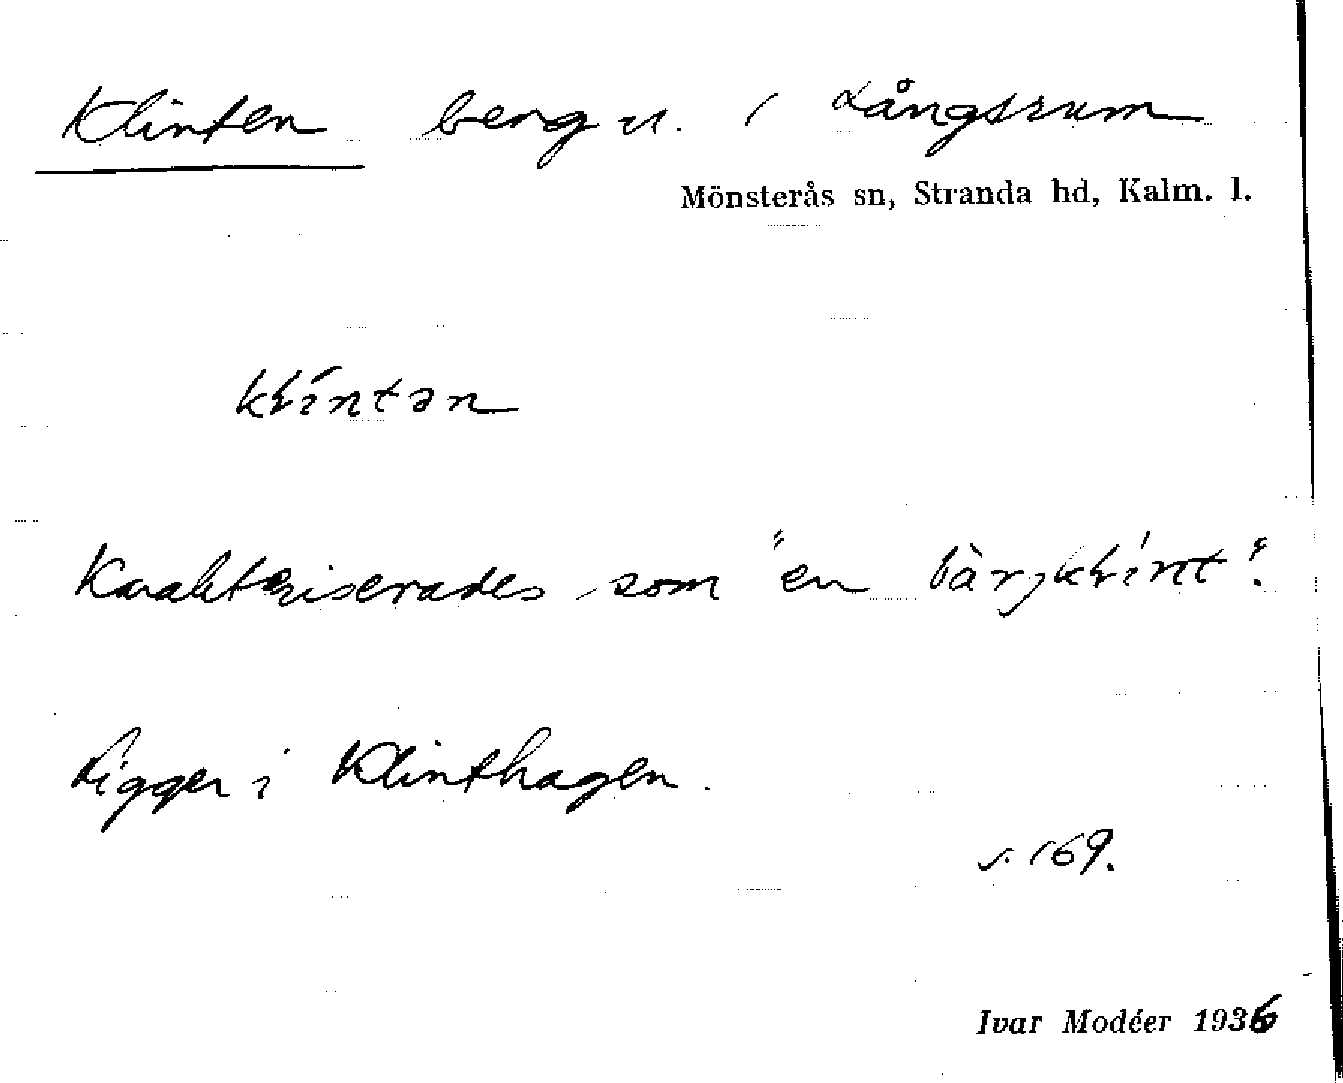 Klinten berg n. i Långsrum
Mönsterås sn, Stranda hd, Kalm. l.
klintən
Kvaliteriserades som "en bàrjklínt".
Ligger i Klinthagen.
s. 169.
Ivar Modéer 1936